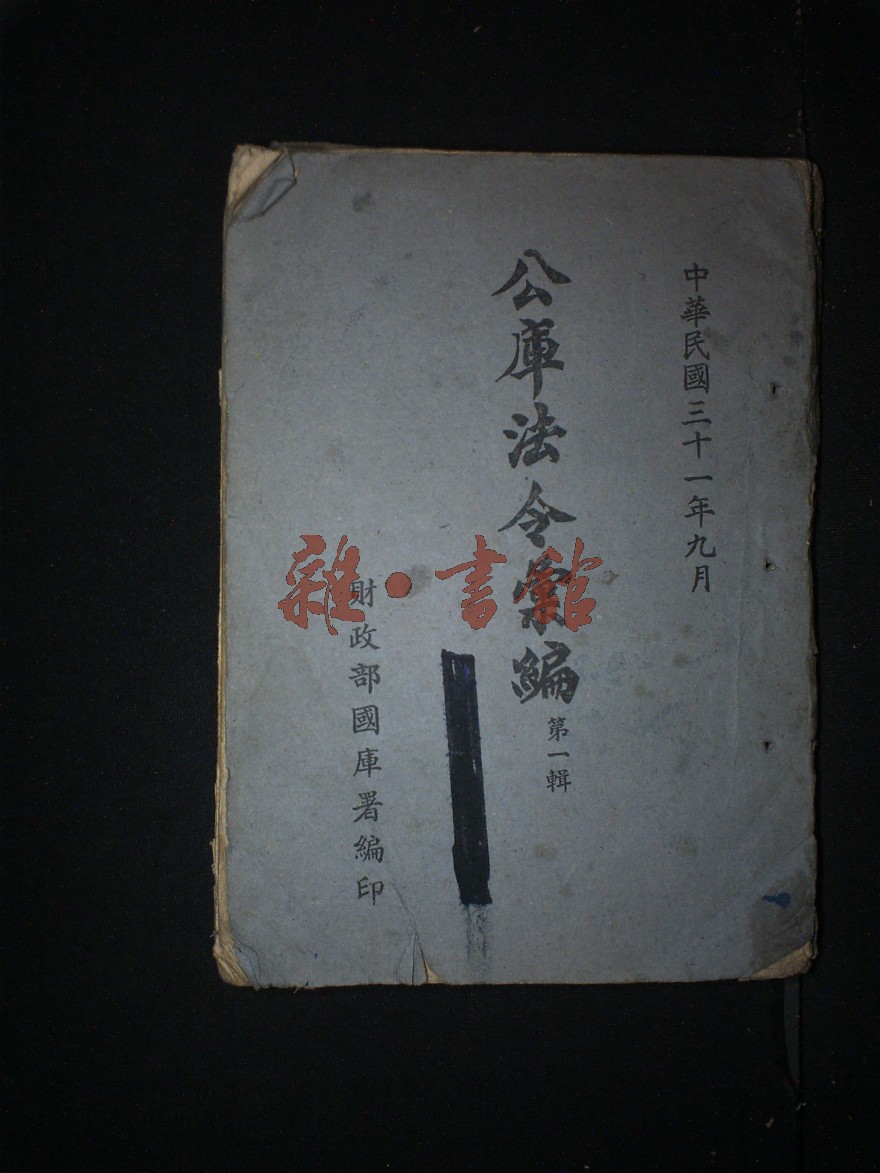 中華民國三十一年九月
公庫法令彙編
第一輯
財政部國庫署編印
雜·書館